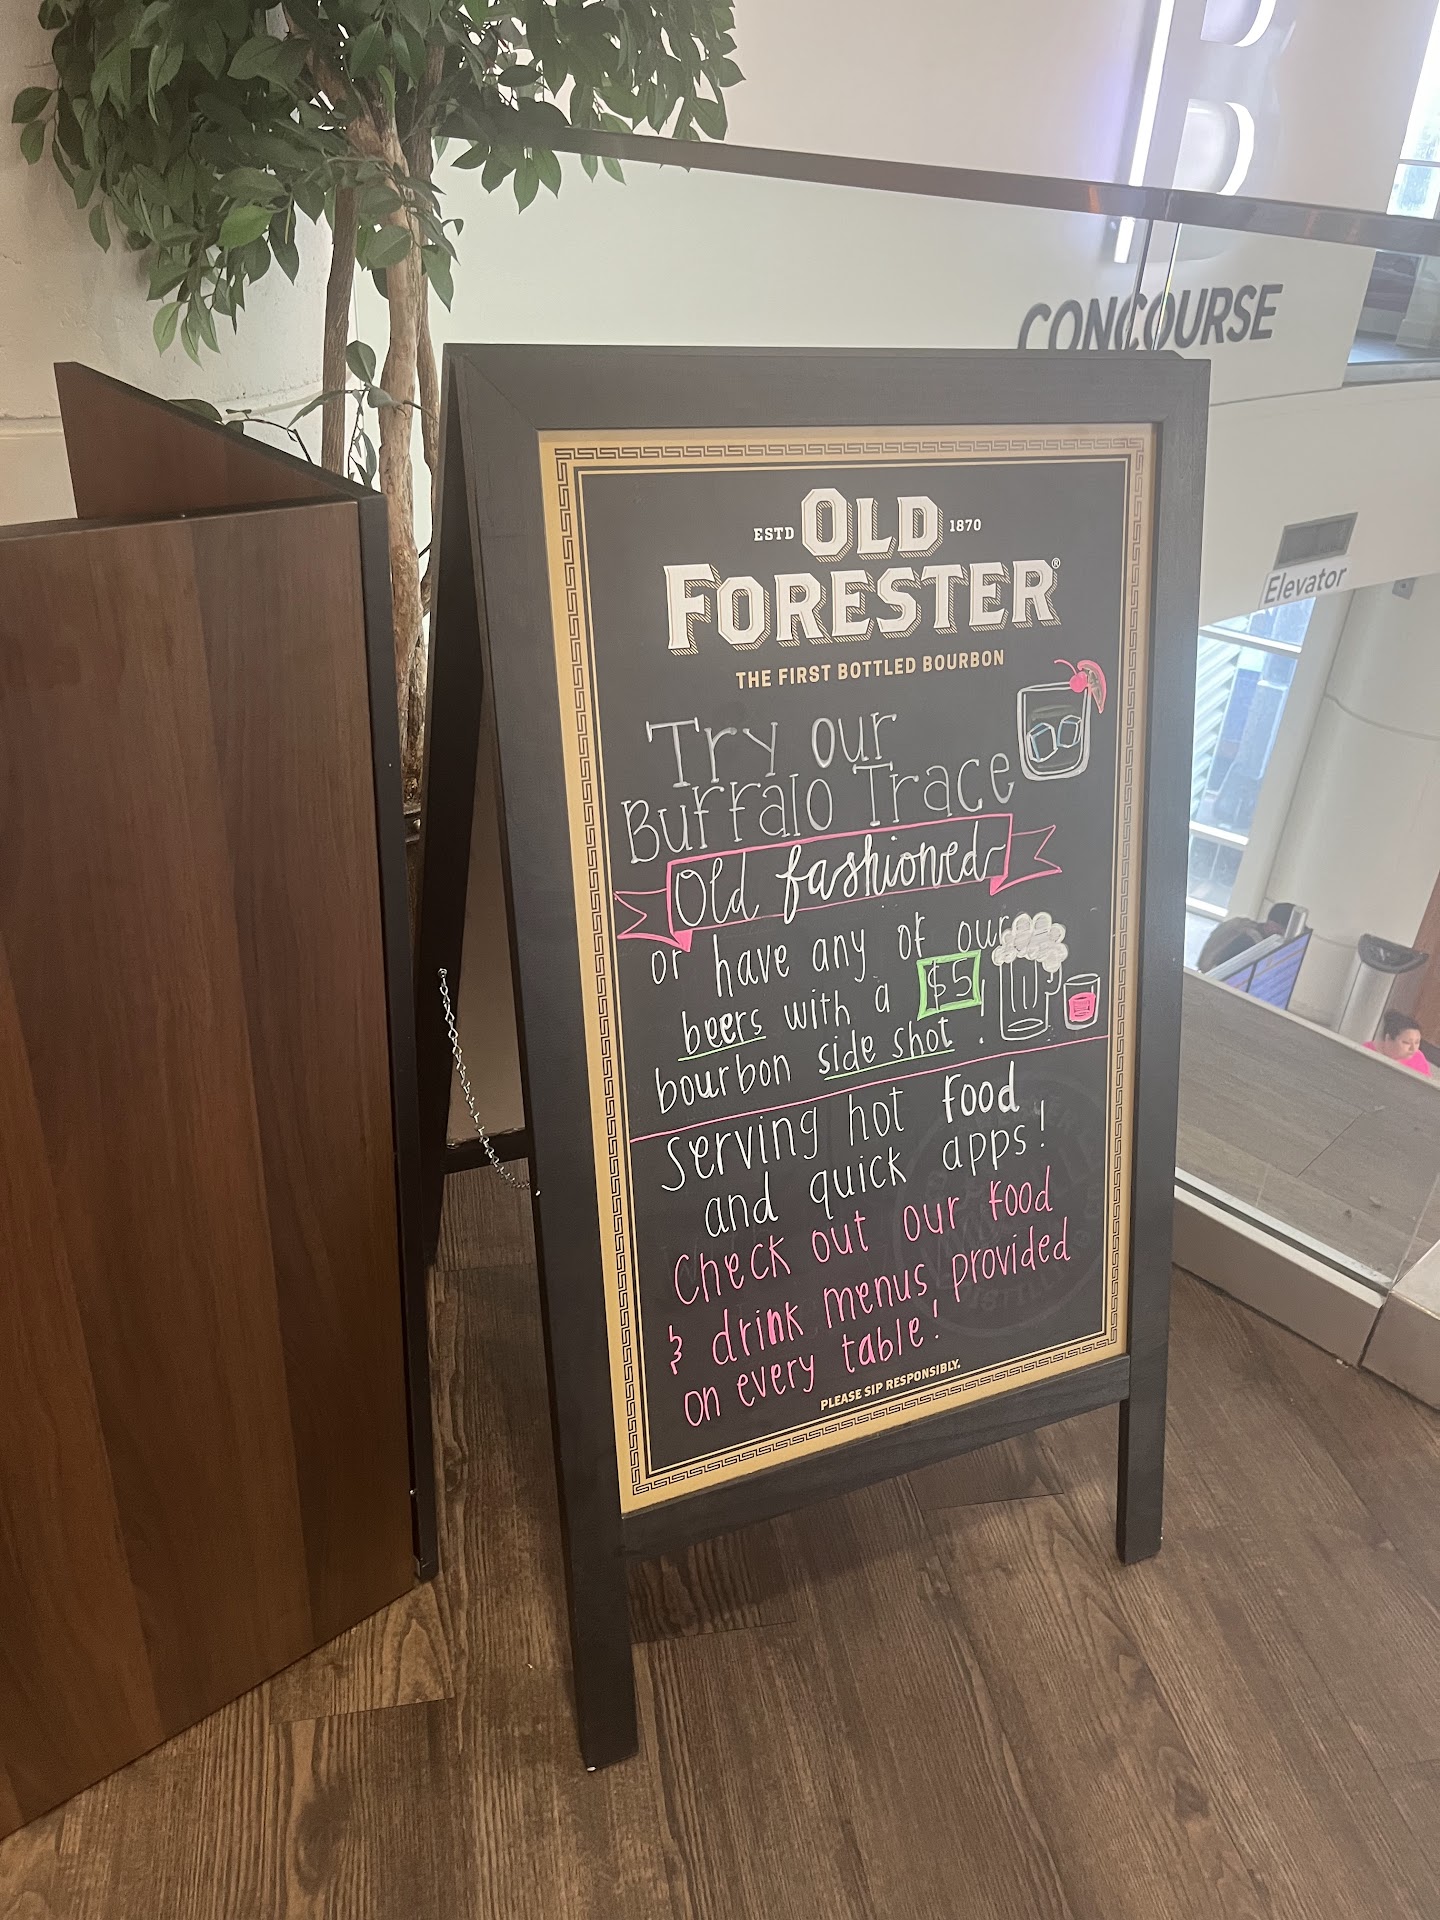 B
CONCOURSE
Elevator
ESTD OLD 1870
FORESTER®
THE FIRST BOTTLED BOURBON
Try our
Buffalo Trace
Old fashioned
or have any of our
beers with a $5
bourbon side shot!
Serving hot food
and quick apps!
Check out our food
& drink menus provided
on every table!
PLEASE SIP RESPONSIBLY.